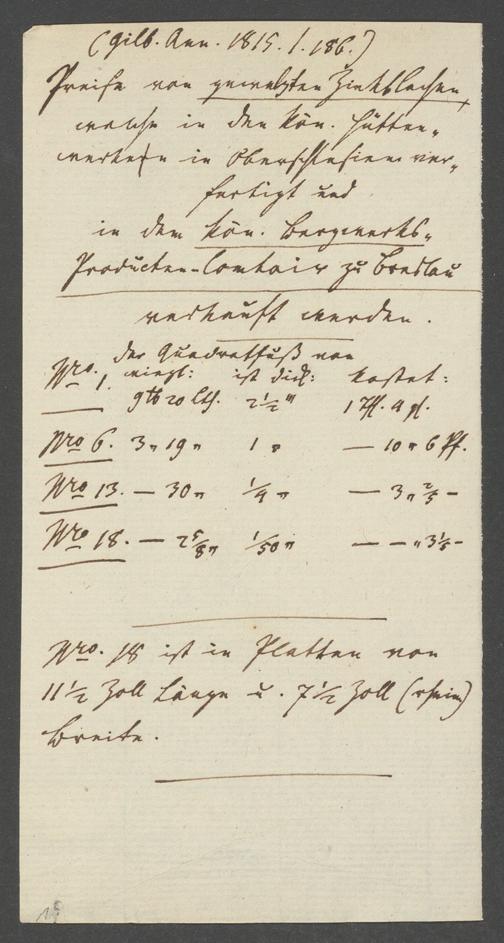 (Gilb. Ann. 1815. 1. 186.)
Preise von gewalzten Zinkblechen,
welche in den Kön. Hütten-
werken in Oberschlesien ver-
fertigt und
in dem Kön. Bergwerks-
Producten-Comtoir zu Breslau
verkauft werden.
der Quadratfuß von
Nro. 1. wiegt: ist dick: kostet:
9 ℔ 20 Lth. 2½ ''' 1 Thl. 4 gl.
Nro 6. 3 " 19 " 1 " — 10 " 6 Pf.
Nro 13. — 30 " 1/4 " — 3 " 2/5 -
Nro 18. — 2 5/8 " 1/50 " — — " 3 1/5 -
Nro. 18 ist in Platten von
11½ Zoll Länge u. 7½ Zoll (rhein)
Breite.